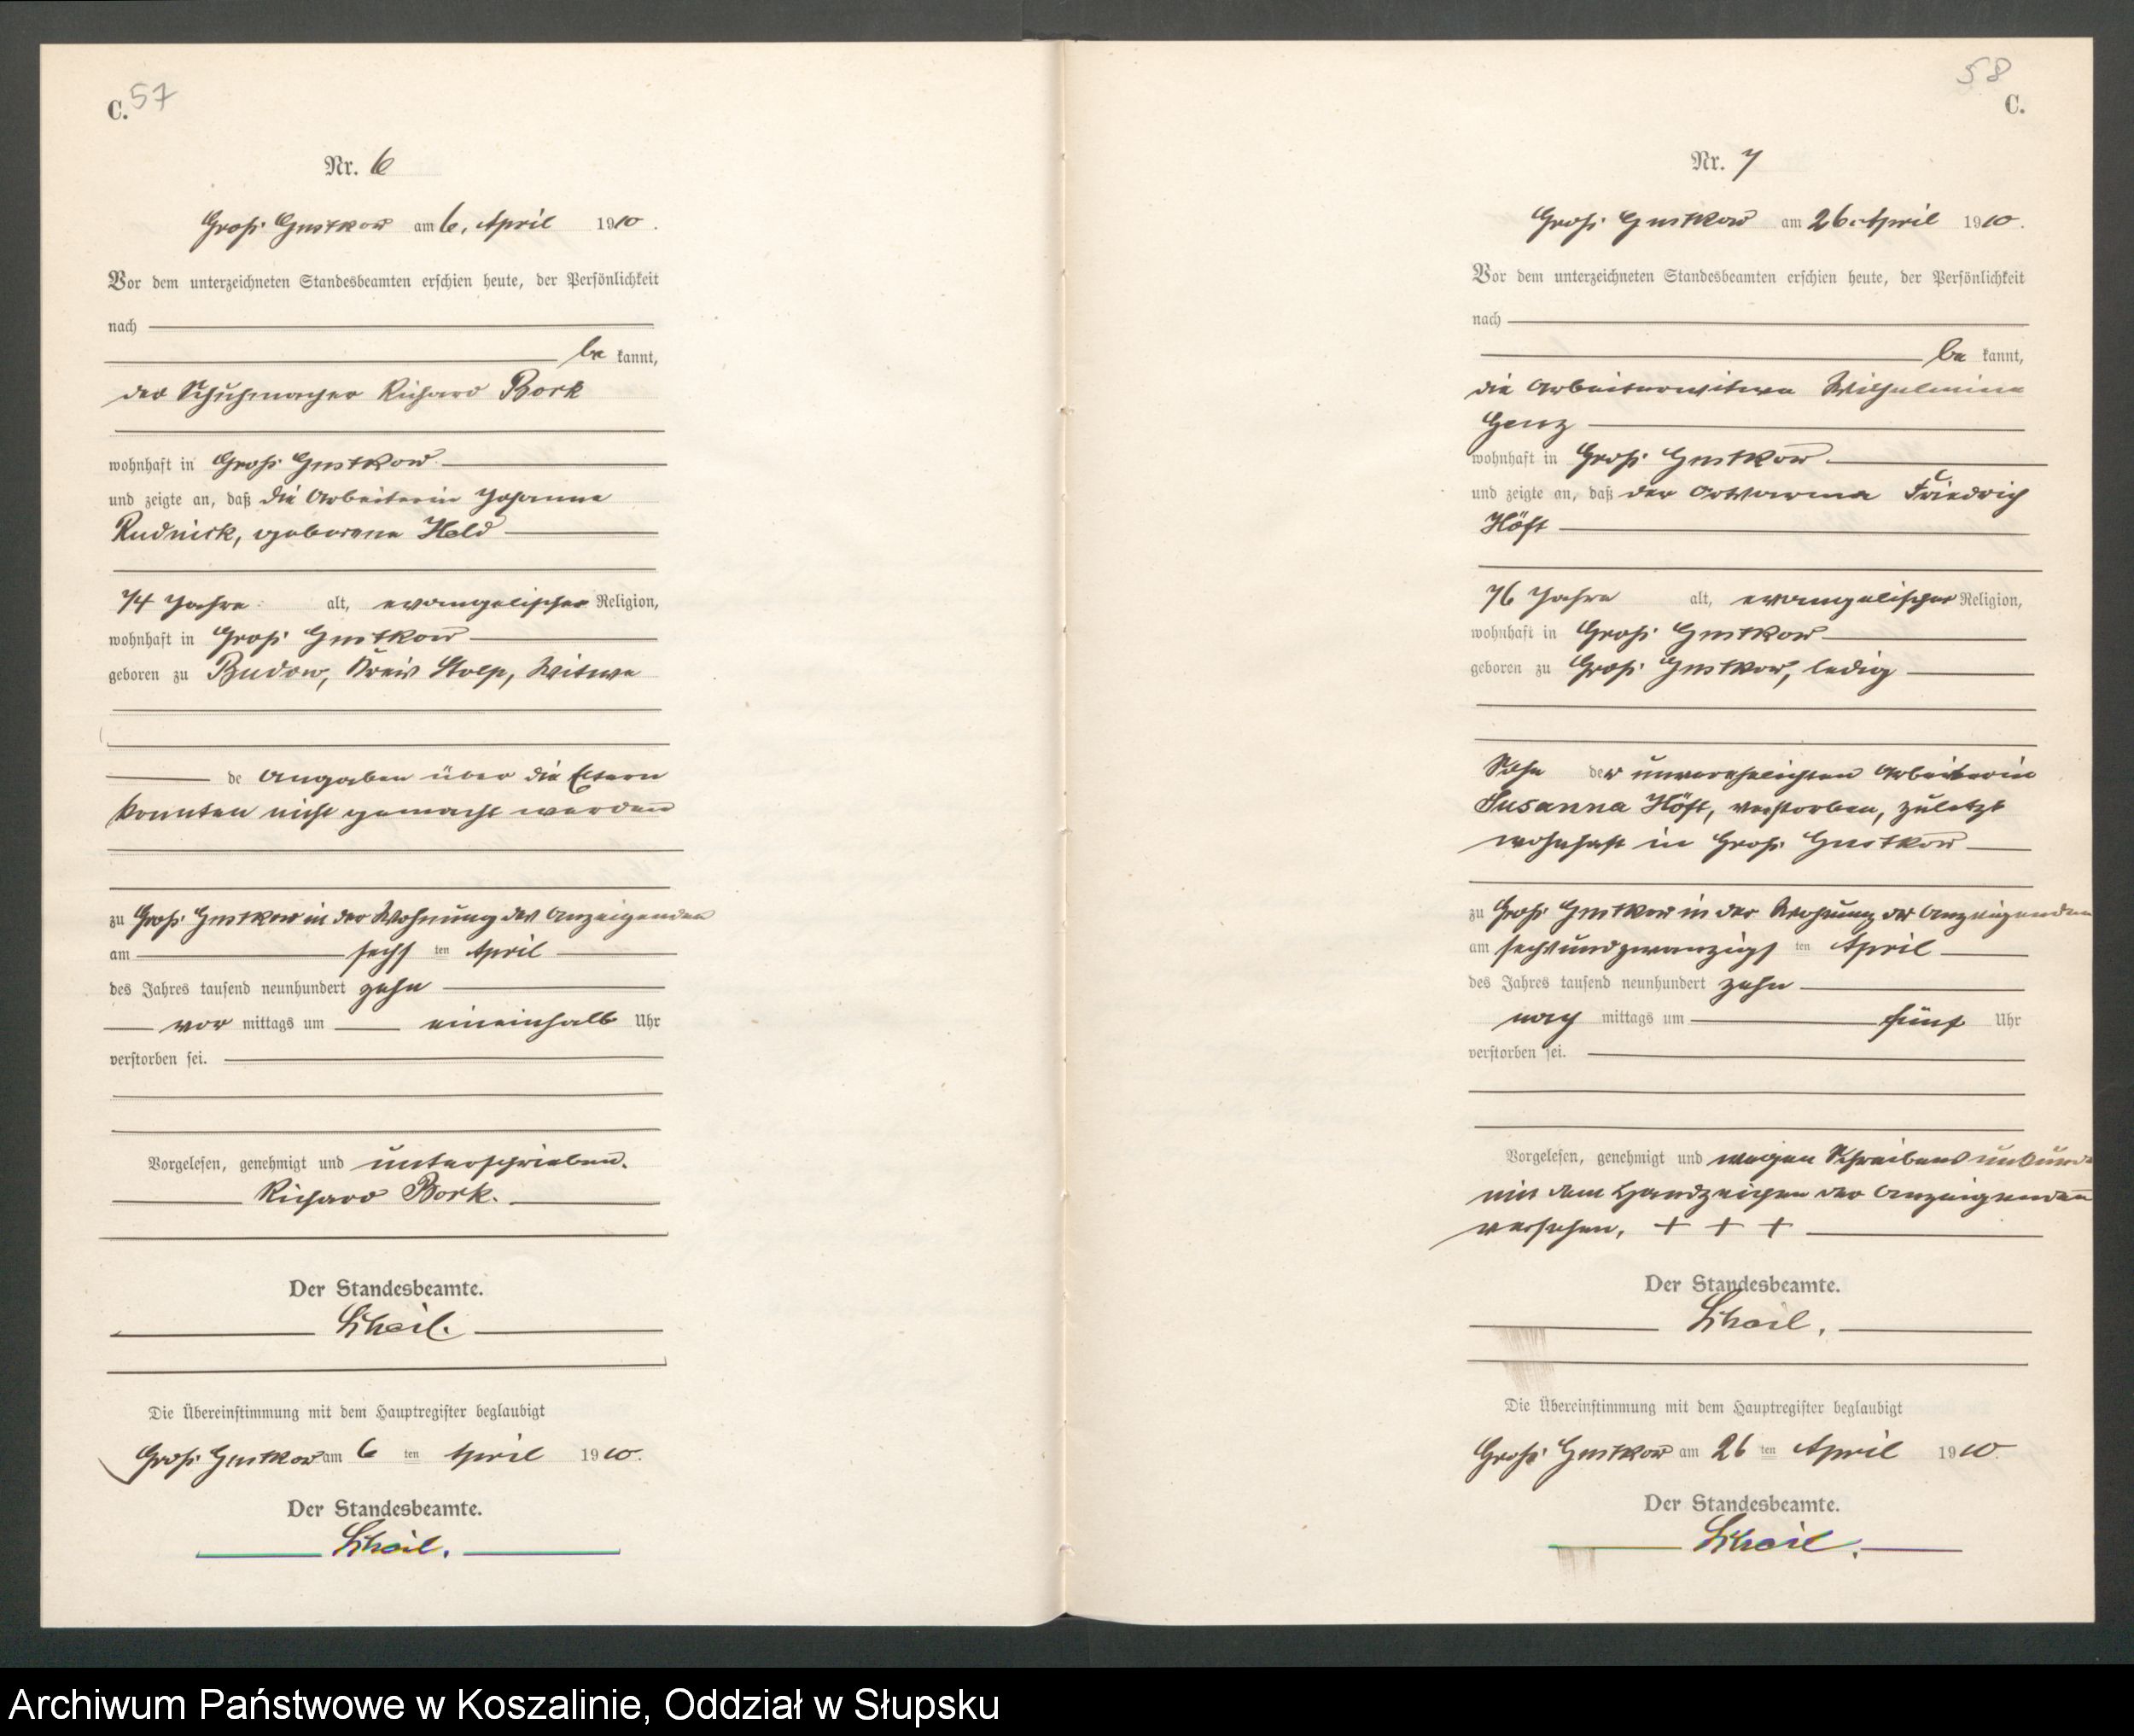 C. 57
Nr. 6
Groß Gustkow am 6. April 1910.
Vor dem unterzeichneten Standesbeamten erschien heute, der Persönlichkeit
nach
be kannt,
der Schuhmacher Richard Bork
wohnhaft in Groß Gustkow
und zeigte an, daß die Arbeiterin Johanna
Rudnick, geborene Held
74 Jahre alt, evangelischer Religion,
wohnhaft in Groß Gustkow
geboren zu Budow, Kreis Stolp, Witwe
de Angaben über die Eltern
konnten nicht gemacht werden
zu Groß Gustkow in der Wohnung des Anzeigenden
am sechs ten April
des Jahres tausend neunhundert zehn
vor mittags um eineinhalb Uhr
verstorben sei.
Vorgelesen, genehmigt und unterschrieben.
Richard Bork.
Der Standesbeamte.
Die Übereinstimmung mit dem Hauptregister beglaubigt
Groß Gustkow am 6 ten April 1910.
Der Standesbeamte.
58
C.
Nr. 7
Groß Gustkow am 26. April 1910.
Vor dem unterzeichneten Standesbeamten erschien heute, der Persönlichkeit
nach
be kannt,
die Arbeiterwitwe Wilhelmine
Genz
wohnhaft in Groß Gustkow
und zeigte an, daß der Ortsarme Friedrich
Höft
76 Jahre alt, evangelischer Religion,
wohnhaft in Groß Gustkow
geboren zu Groß Gustkow, ledig
Sohn der unverehelichten Arbeiterin
Susanna Höft, verstorben, zuletzt
wohnhaft in Groß Gustkow
zu Groß Gustkow in der Wohnung der Anzeigenden
am sechsundzwanzigs ten April
des Jahres tausend neunhundert zehn
nach mittags um fünf Uhr
verstorben sei.
Vorgelesen, genehmigt und wegen Schreibens unkund
mit dem Handzeichen der Anzeigenden
versehen. + + +
Der Standesbeamte.
Die Übereinstimmung mit dem Hauptregister beglaubigt
Groß Gustkow am 26 ten April 1910.
Der Standesbeamte.
Archiwum Państwowe w Koszalinie, Oddział w Słupsku